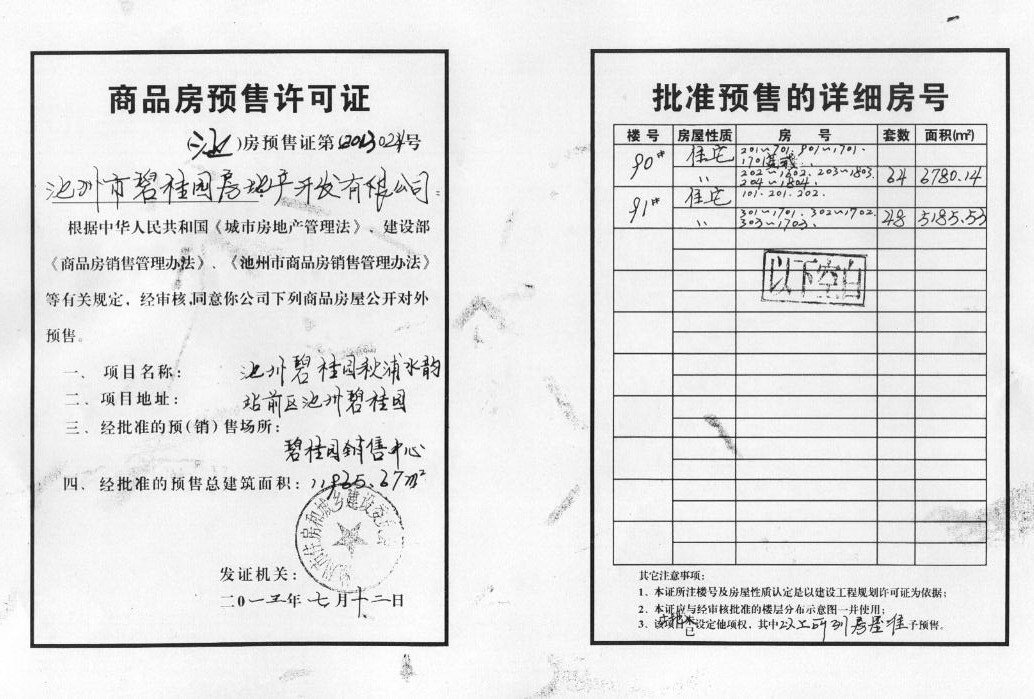 商品房预售许可证
(池)房预售证第2013024号
池州市碧桂园房地产开发有限公司:
根据中华人民共和国《城市房地产管理法》、建设部
《商品房销售管理办法》、《池州市商品房销售管理办法》
等有关规定，经审核,同意你公司下列商品房屋公开对外
预售。
一、项目名称: 池州碧桂园秋浦水韵
二、项目地址: 站前区池州碧桂园
三、经批准的预(销)售场所:
碧桂园销售中心
四、经批准的预售总建筑面积: 11965.67m²
住房和城乡建设委员会
发证机关:
二0一三年七月十二日
批准预售的详细房号
楼号 房屋性质 房号 套数 面积(㎡)
90# 住宅 201～701.901～1701.
〃 202～1802.203～1803.
204～1804. 64 6780.14
91# 住宅 101.201.202.
〃 301～1701.302～1702.
303～1703. 48 5185.53
以下空白
其它注意事项:
1、本证所注楼号及房屋性质认定是以建设工程规划许可证为依据;
2、本证应与经审核批准的楼层分布示意图一并使用;
3、该项目 设定他项权, 其中以上所列房屋准予预售。